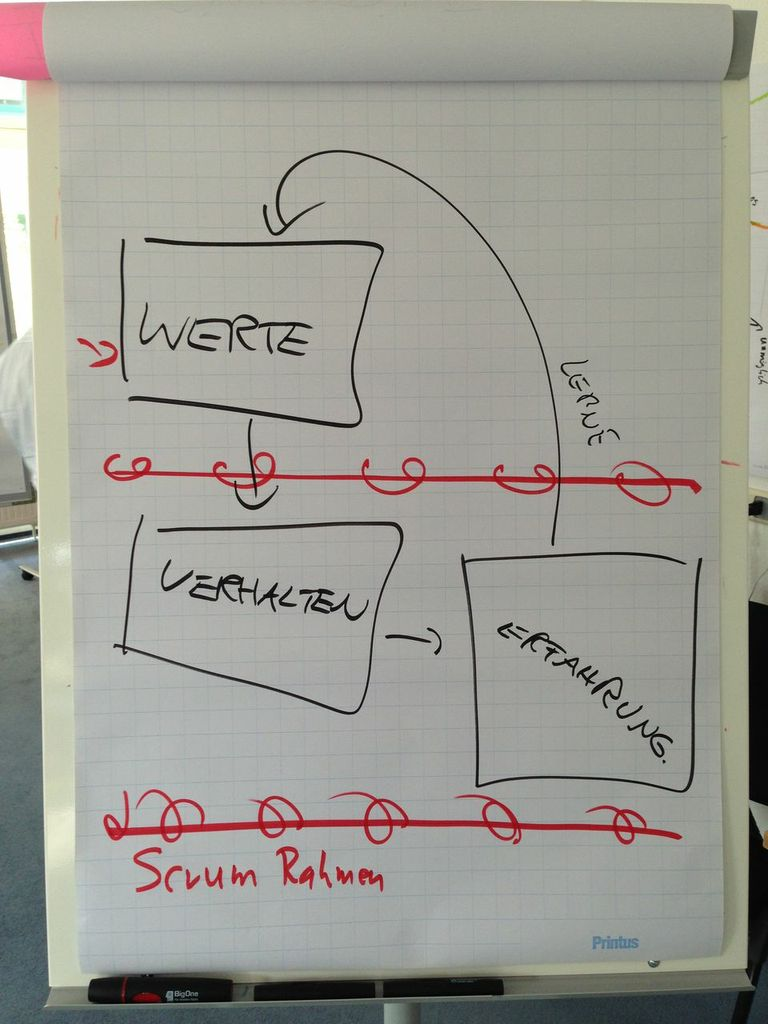 WERTE
LERNE
VERHALTEN
ERFAHRUNG.
Scrum Rahmen
Printus
BigOne